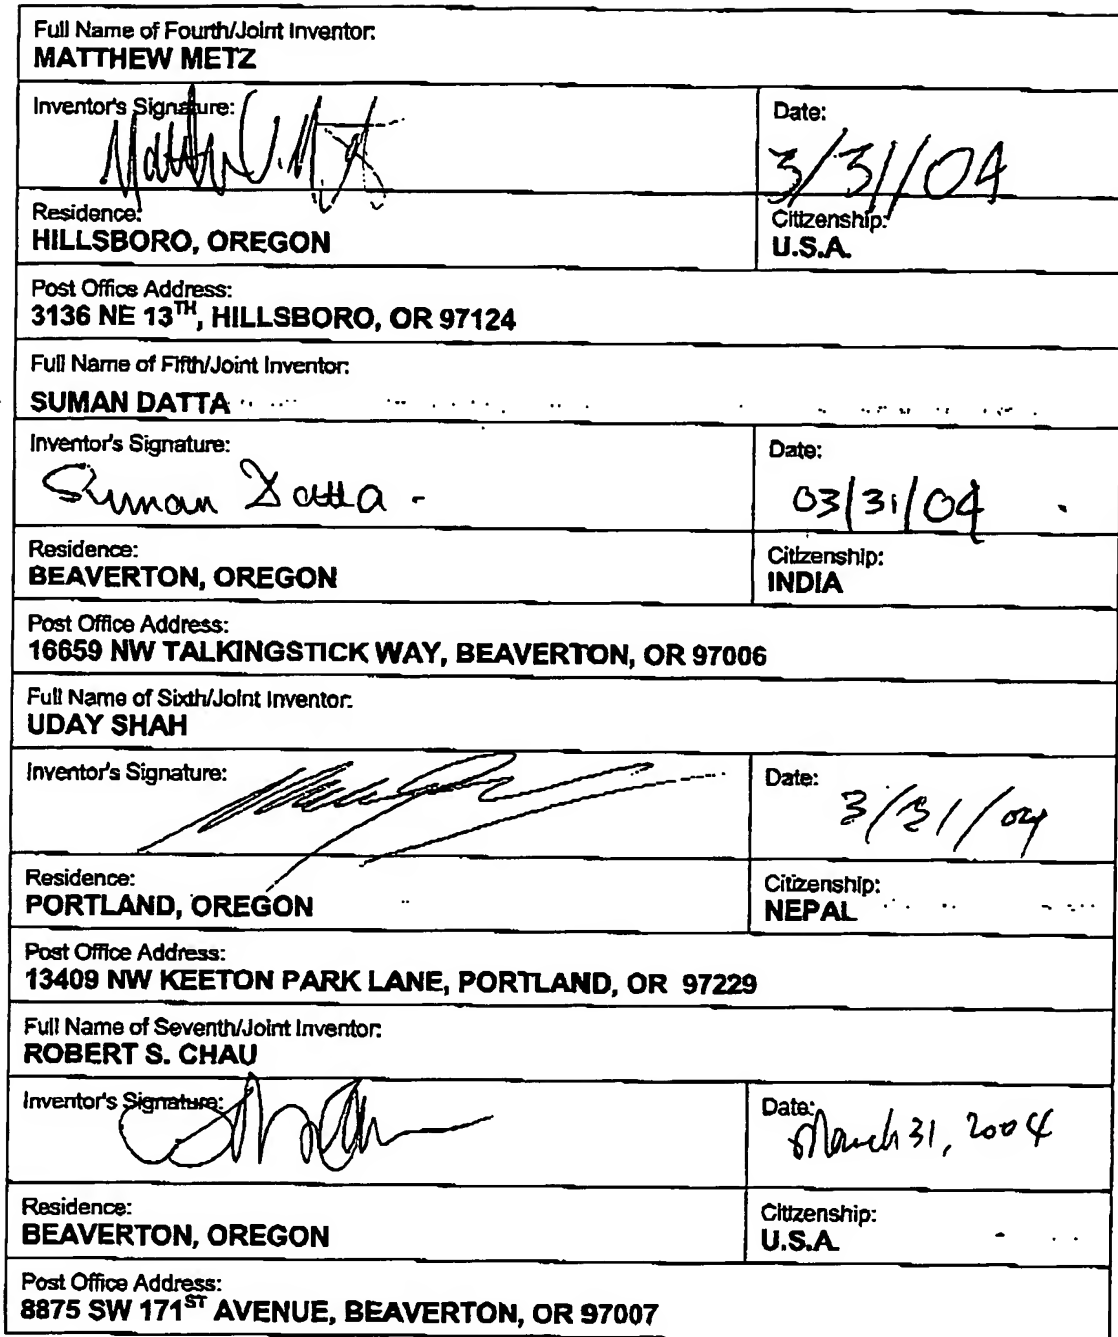 Full Name of Fourth/Joint Inventor:
MATTHEW METZ
Inventor's Signature:
Date:
3/31/04
Residence:
HILLSBORO, OREGON
Citizenship:
U.S.A.
Post Office Address:
3136 NE 13TH, HILLSBORO, OR 97124
Full Name of Fifth/Joint Inventor:
SUMAN DATTA
Inventor's Signature:
Suman Datta
Date:
03/31/04
Residence:
BEAVERTON, OREGON
Citizenship:
INDIA
Post Office Address:
16659 NW TALKINGSTICK WAY, BEAVERTON, OR 97006
Full Name of Sixth/Joint Inventor:
UDAY SHAH
Inventor's Signature:
Date:
3/31/04
Residence:
PORTLAND, OREGON
Citizenship:
NEPAL
Post Office Address:
13409 NW KEETON PARK LANE, PORTLAND, OR 97229
Full Name of Seventh/Joint Inventor:
ROBERT S. CHAU
Inventor's Signature:
Date:
March 31, 2004
Residence:
BEAVERTON, OREGON
Citizenship:
U.S.A
Post Office Address:
8875 SW 171ST AVENUE, BEAVERTON, OR 97007